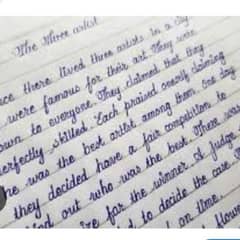 The three artist
ce there lived three artists in a city.
were famous for their art. They were
own to everyone. They claimed that they
erfectly skilled. Each praised oneself claiming
he was the best artist among them. One day
they decided have a fair competition to
find out who was the best. There was
for the winner. A judge
to decide the case.
on time.